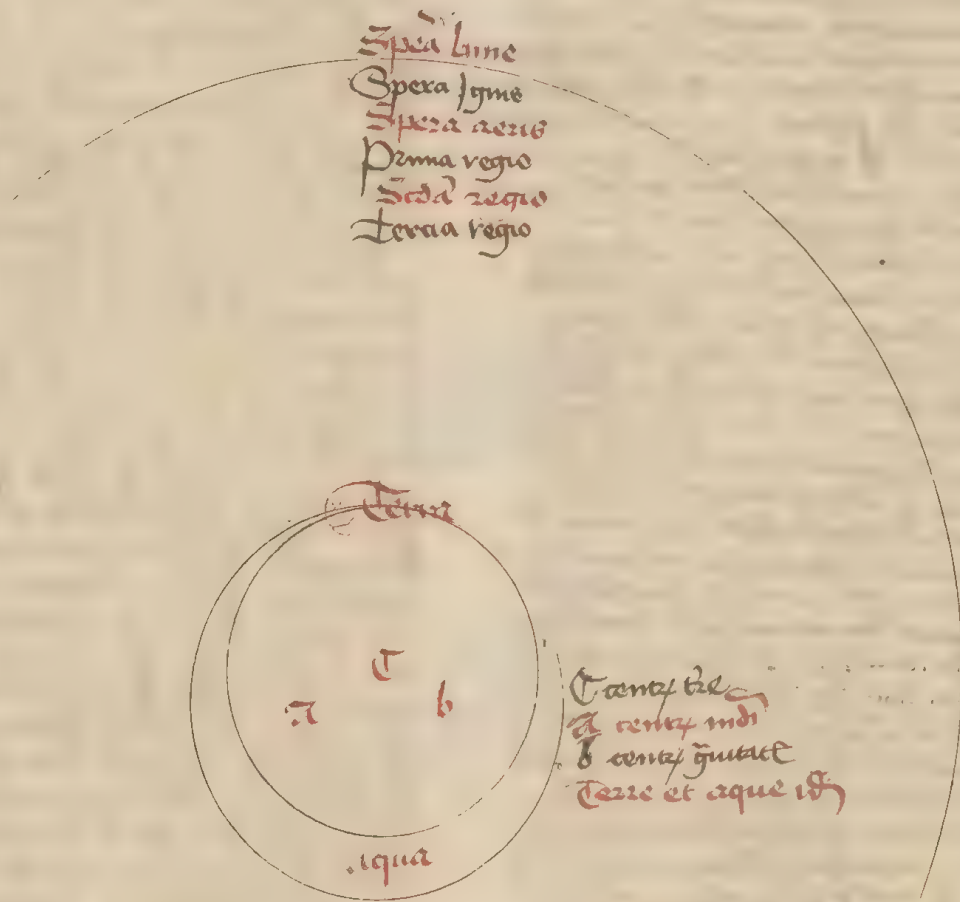 Spera lune
Spera Ignis
Spera aeris
Prima regio
Scda regio
Tercia regio
Terra
C
A
b
C centrꝝ tre
A centrꝝ mdi
b centrꝝ gͣuitatꝭ
Terre et aque id
Aqua